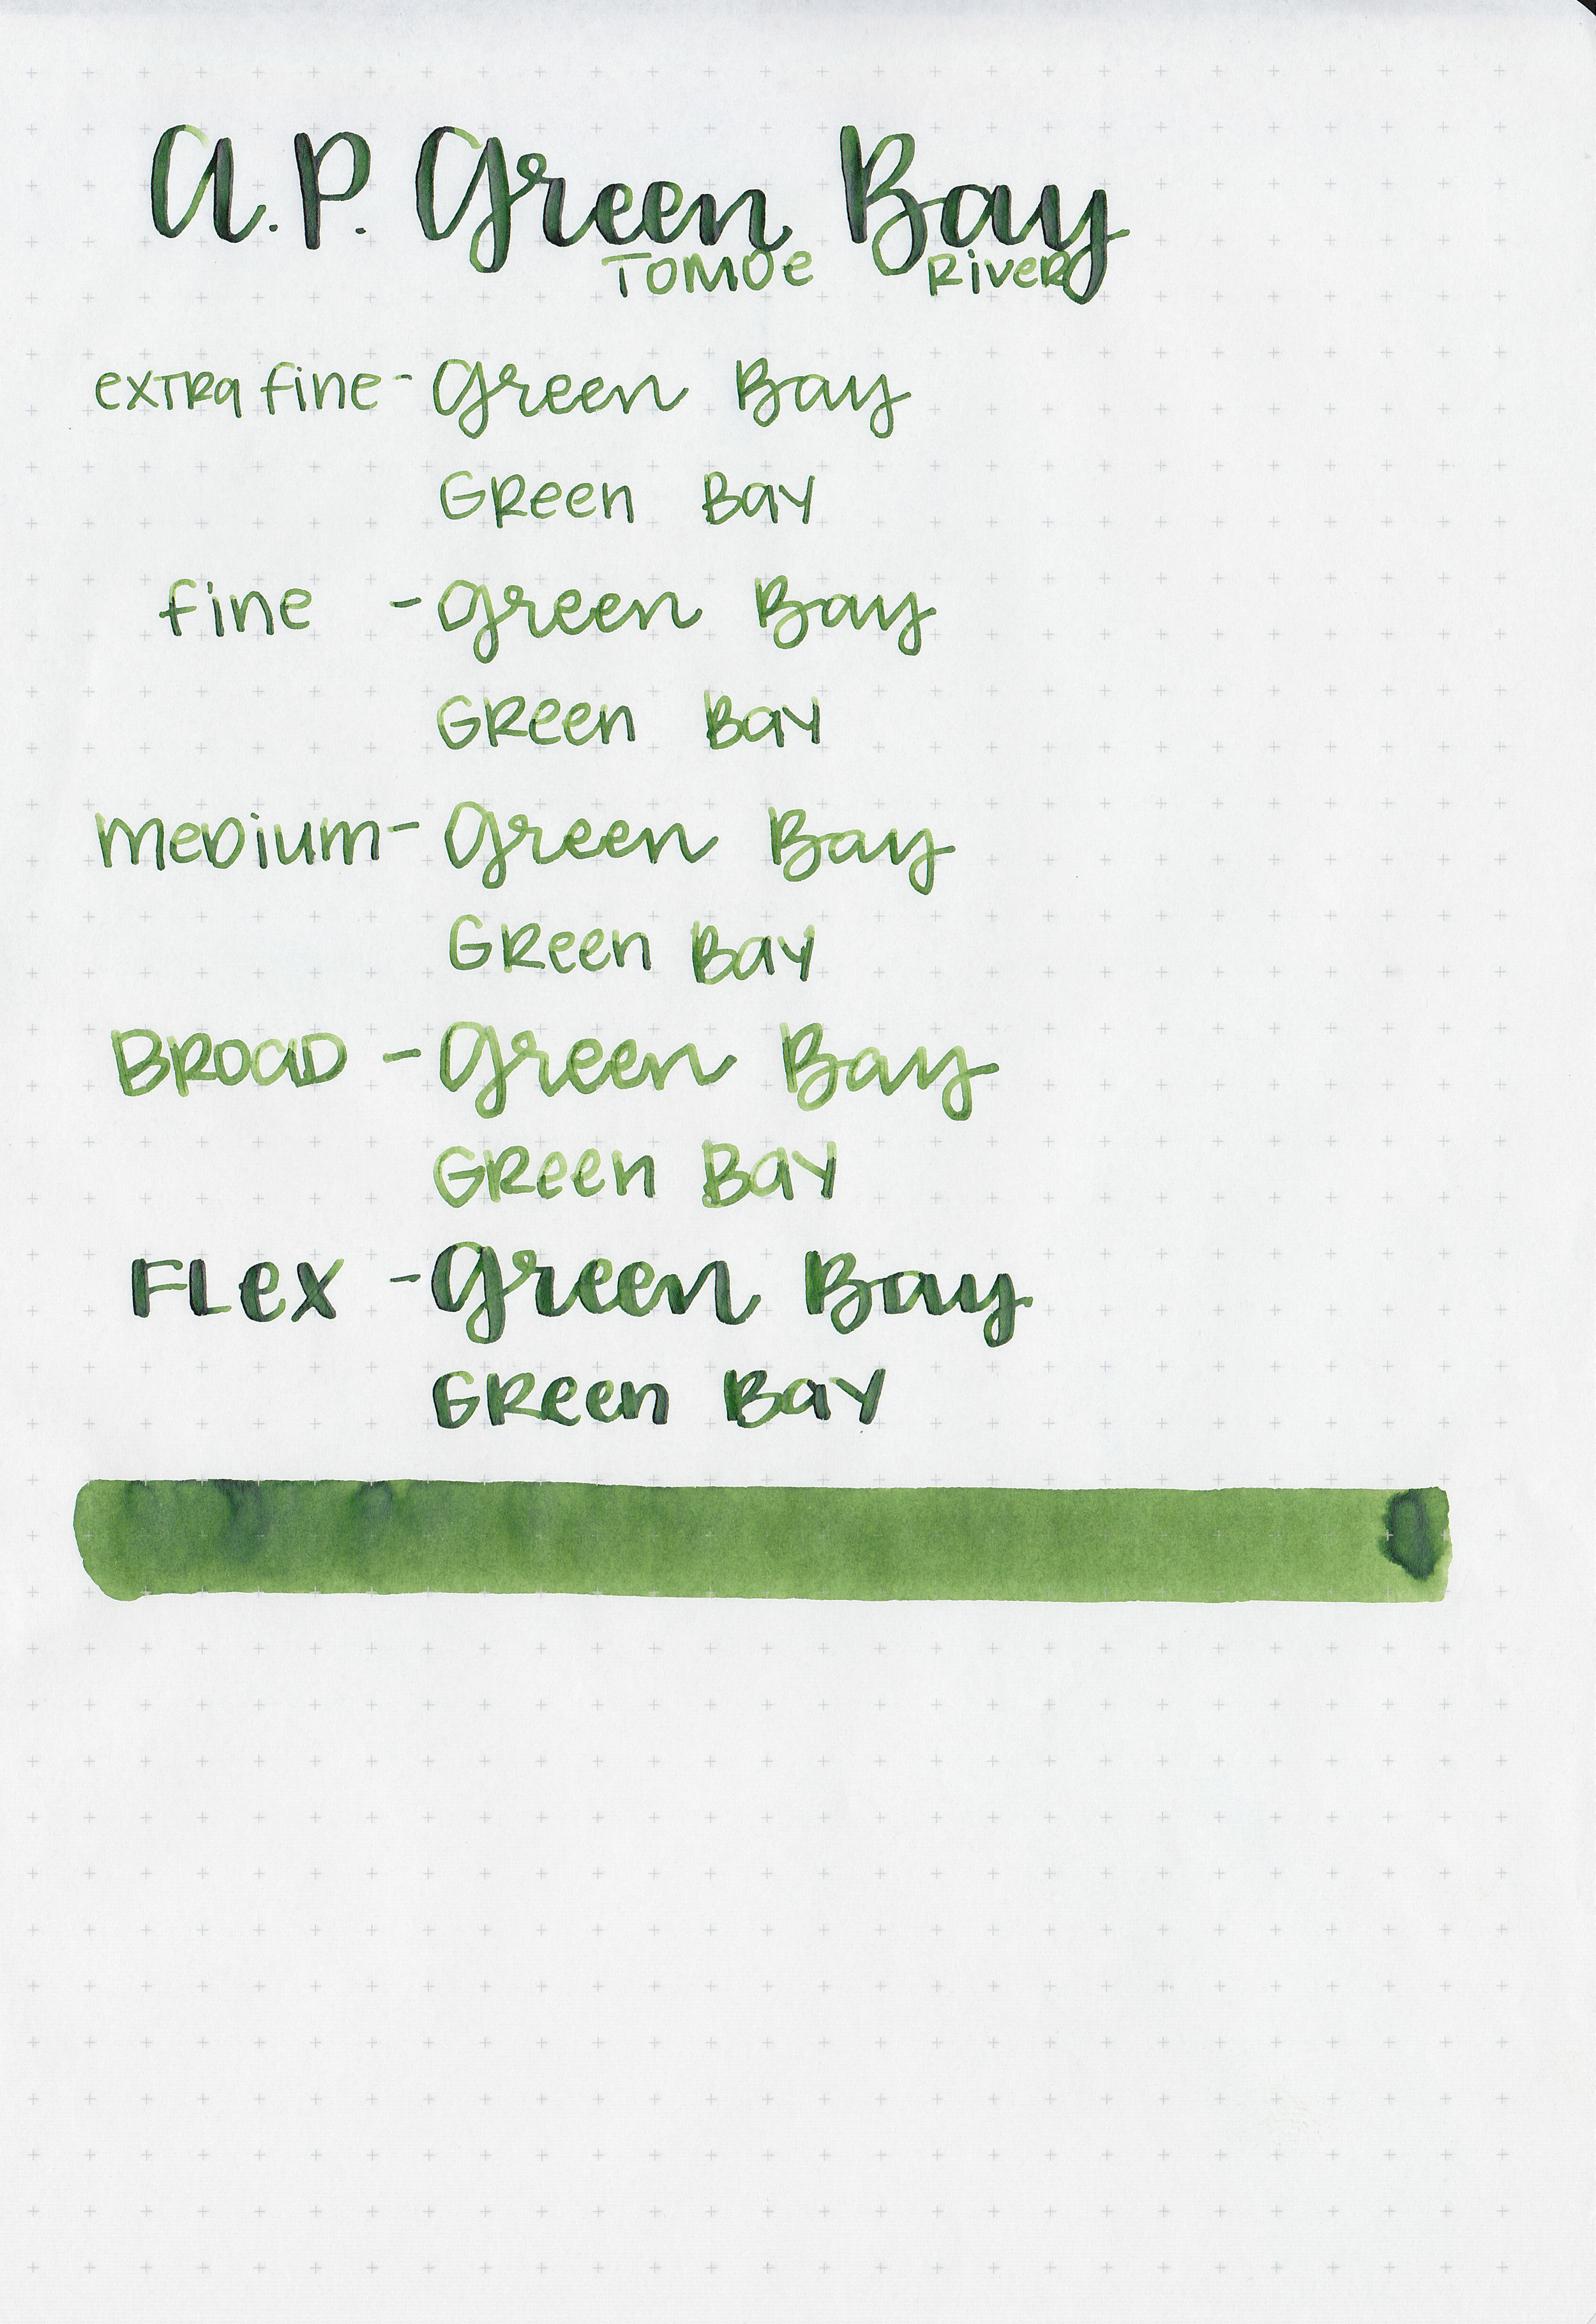 a.P. Green Bay
Tomoe River
extra fine - Green Bay
Green Bay
fine - Green Bay
Green Bay
Medium - Green Bay
Green Bay
BROAD - Green Bay
Green Bay
FLex - Green Bay
Green Bay